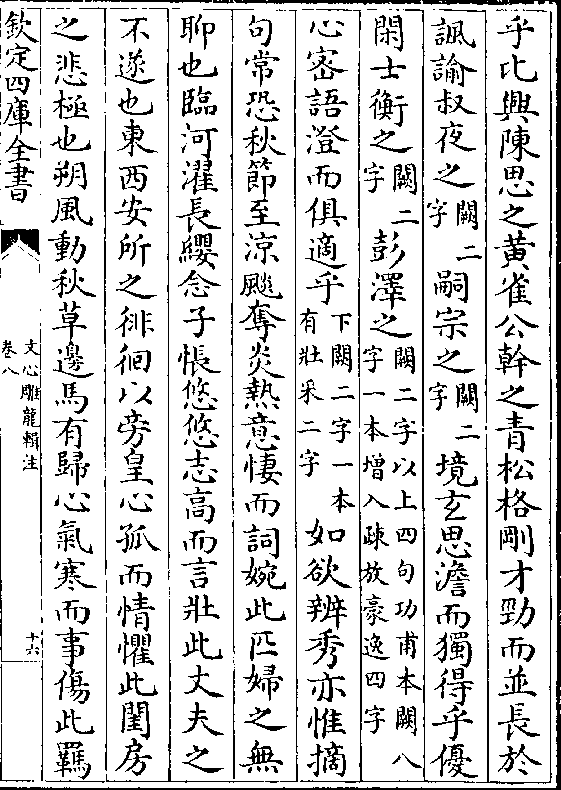 乎比興陳思之黄雀公幹之青松格剛才勁而並長於
諷諭叔夜之闕二字嗣宗之闕二字境玄思澹而獨得乎優
閑士衡之闕二字彭澤之闕二字以上四句功甫本闕八字一本增入疎放豪逸四字
心密語澄而俱適乎下闕二字一本有壯采二字如欲辨秀亦惟摘
句常恐秋節至涼飈奪炎熱意悽而詞婉此匹婦之無
聊也臨河濯長纓念子悵悠悠志高而言壯此丈夫之
不遂也東西安所之徘徊以旁皇心孤而情懼此閨房
之悲極也朔風動秋草邊馬有歸心氣寒而事傷此羈
欽定四庫全書
文心雕龍輯注
卷八
十六